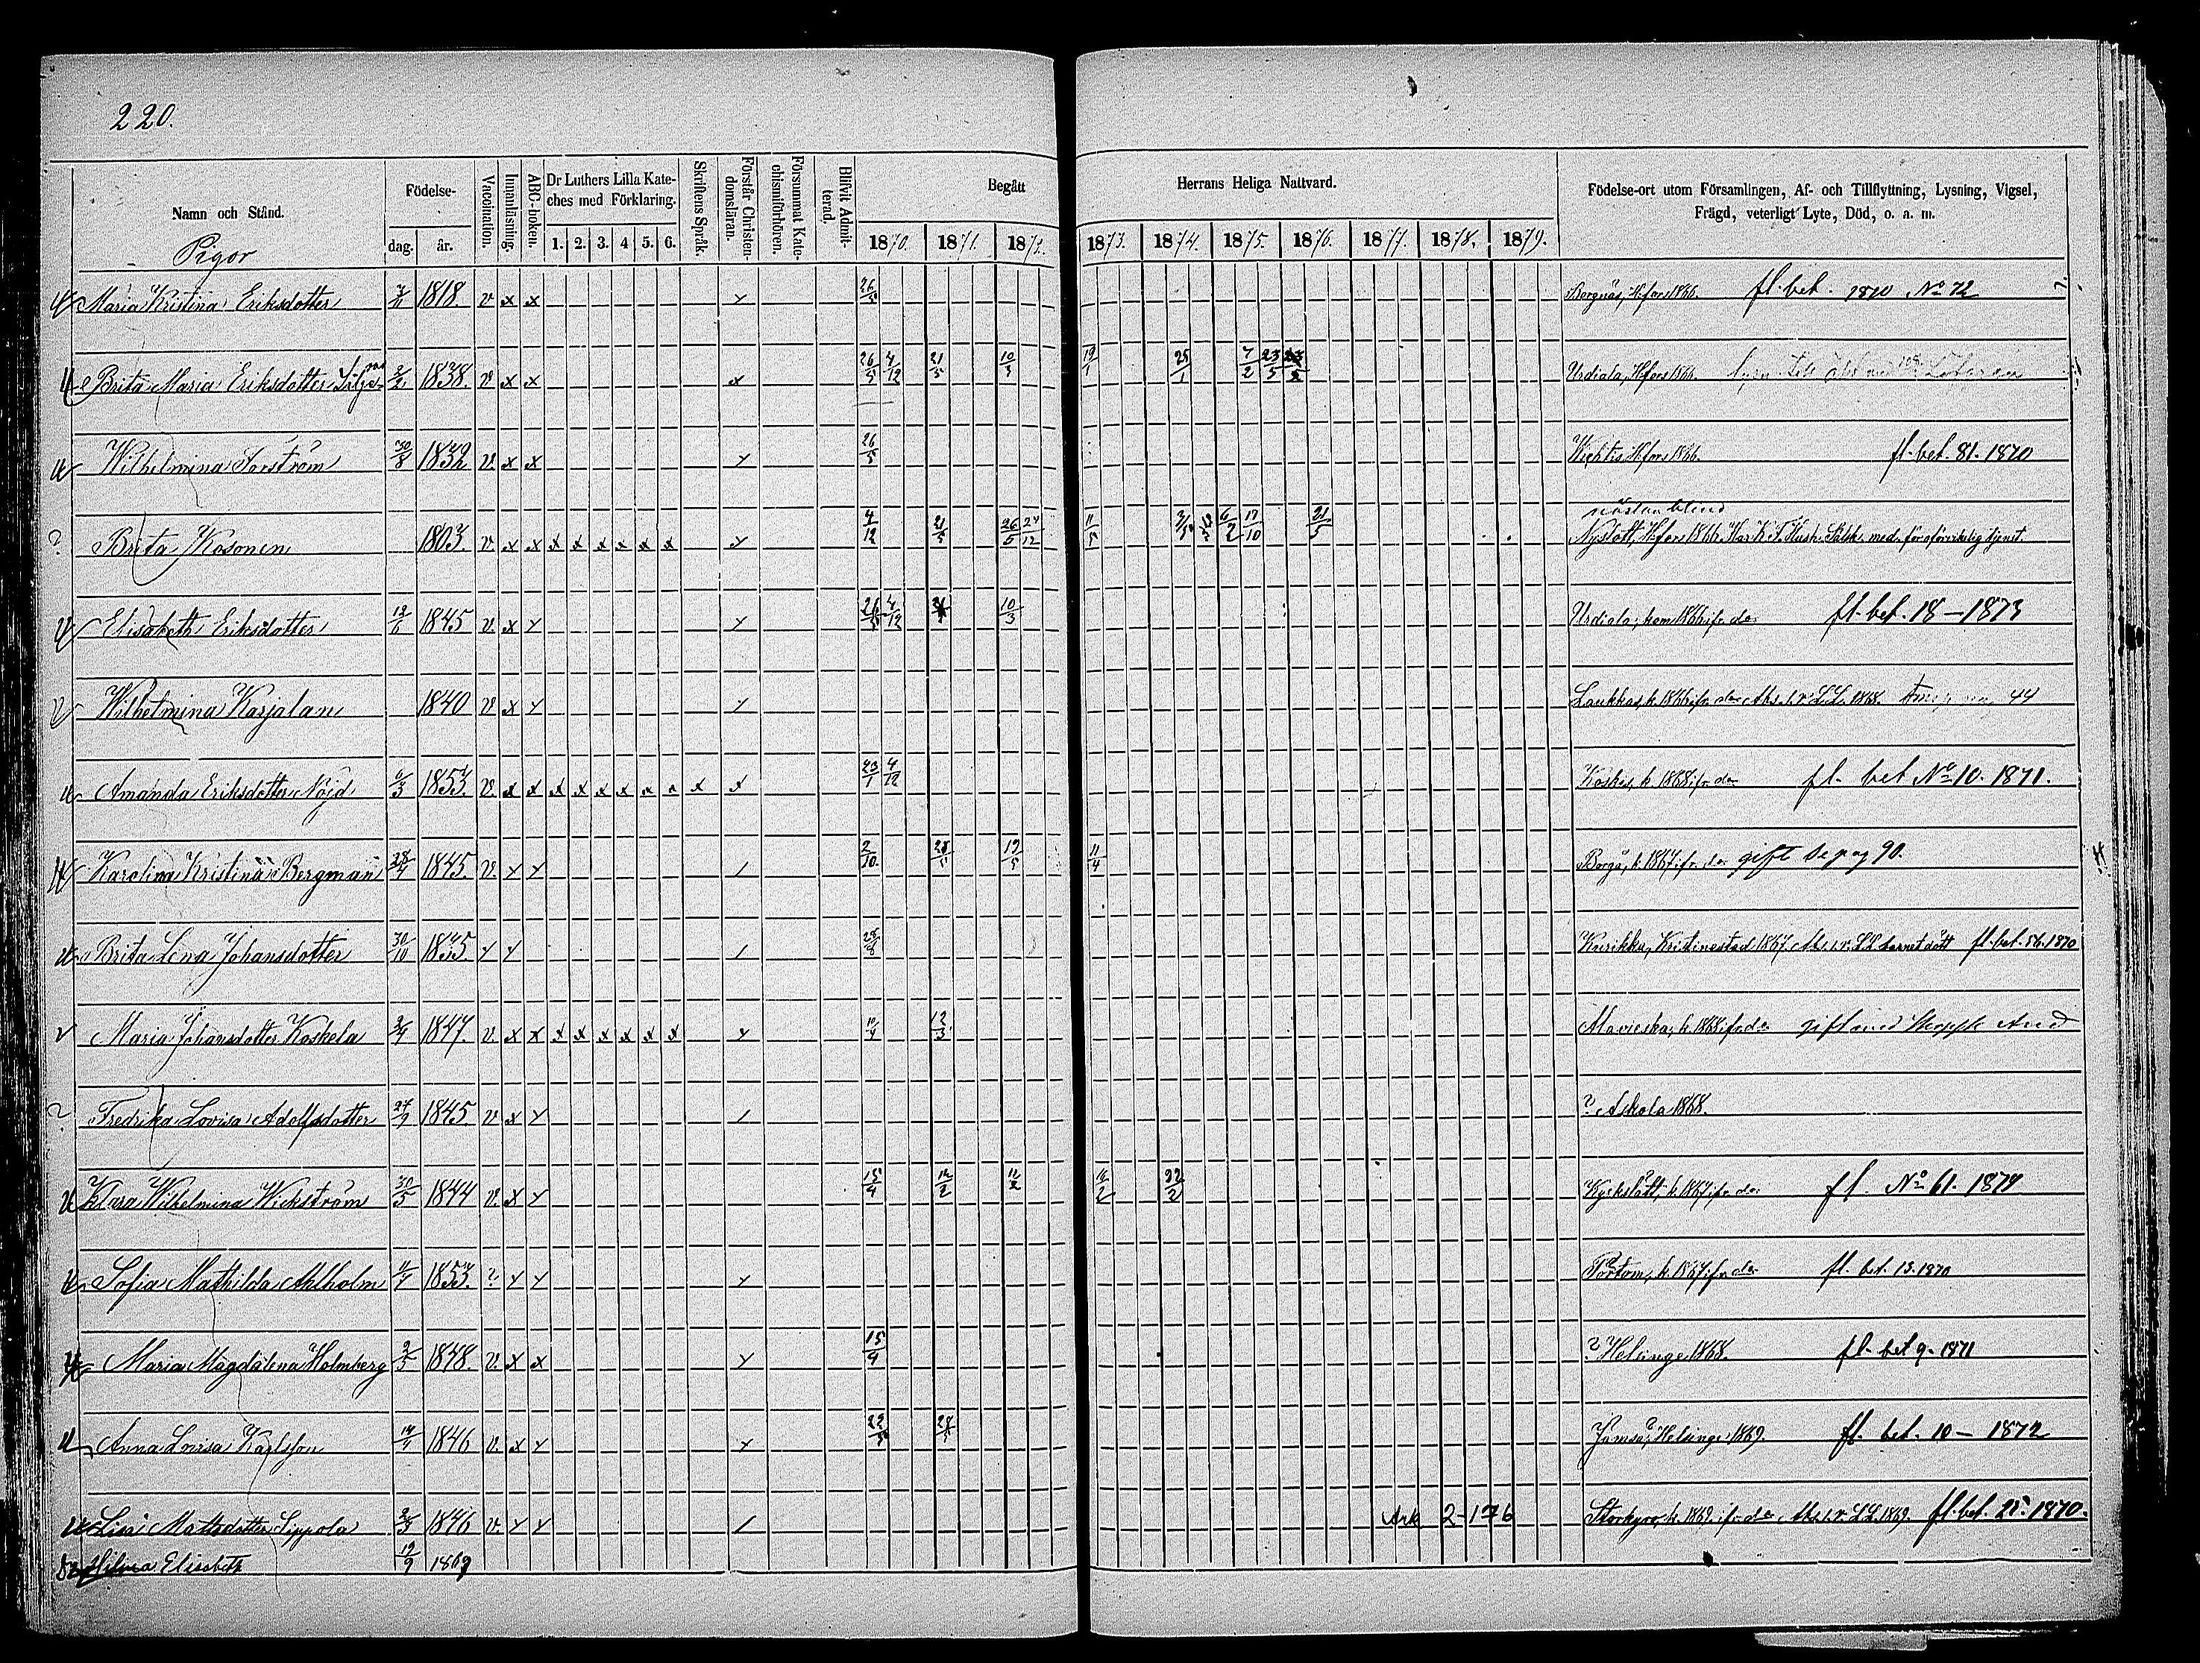 220.
Namn och Stånd.
Födelse-
dag. år.
Vaccination.
Innanläsning.
ABC-boken.
Dr Luthers Lilla Kate-
ches med Förklaring.
1. 2. 3. 4 5. 6.
Skriftens Språk.
Förstår Christen-
domsläran.
Försummat Kate-
chismiförhören.
Blifvit Admit-
terad.
Begått Herrans Heliga Nattvard.
1870. 1871. 1872. 1873. 1874. 1875. 1876. 1877. 1878. 1879.
Födelse-ort utom Församlingen, Af- och Tillflyttning, Lysning, Vigsel,
Frägd, veterligt Lyte, Död, o. a. m.
Pigor
Maria Kristina Eriksdotter 1818 v. x x 26/5 H:fors 1866. fl. bet. 1870 No 72
Brita Maria Eriksdotter 1838. v x x x 26/5 4/12 21/5 10/3 19/1 25/1 7/2 23/5 Urdiala, H:fors 1866.
Wilhelmina Forström 30/8 1832 v. x x 26/5 Wichtis H:fors 1866. fl. bet. 81. 1870
nästan blind
Brita Kosonen 1803. v x x x x x x x x 4/12 21/5 26/5 11/5 6/2 17/10 21/5 Nyslott, H:fors 1866.
Elisabeth Eriksdotter 12/6 1845 v. x x 26/5 4/12 10/3 Urdiala, kom 1866 ifr. do. fl. bet. 18 - 1873
Wilhelmina Karjalan 1840 v x x Laukkas, k. 1866 ifr. do. 1868. 44
Amanda Eriksdotter Nöjd 6/3 1853. v. x x x x x x x x x x 23/1 4/12 Koskis, k. 1868 ifr. do. fl. bet No 10. 1871.
Karolina Kristina Bergman 28/4 1845. v. 2/10 19/5 11/4 Borgå, k. 1867 ifr. do gift se pag 90.
Brita Lena Johansdotter 30/10 1835. Kurikka, Kristinestad 1867. barnet dött fl. bet. 56. 1870
Maria Johansdotter Koskela 2/9 1847. v. x x x x x x x x 12/3 k. 1868 ifr. do gift med
? Fredrika Lovisa Adolfsdotter 27/9 1845. v. x ? Askola 1868.
Klara Wilhelmina Wickström 30/5 1844 v. x 15/4 12/2 12/2 22/2 Kyrkslätt, k. 1867 ifr. do. fl. No 61. 1874
Sofia Mathilda Ahlholm 1853. ? Pörtom, k. 1867 ifr. do fl. bet. 13. 1870
Maria Magdalena Holmberg 2/3 1848. v. x x 15/4 ? Helsinge 1868. fl. bet 9. 1871
Anna Lovisa Karlsson 1846 v. x 22/5 Jämsä, Helsinge 1869. fl. bet. 10 - 1872
Lisa Mattsdotter Sippola 2/3 1846 v. Ark 2-176 Storkyro, k. 1869 ifr. do 1869. fl. bet. 25. 1870.
Hilma Elisabeth 19/9 1869